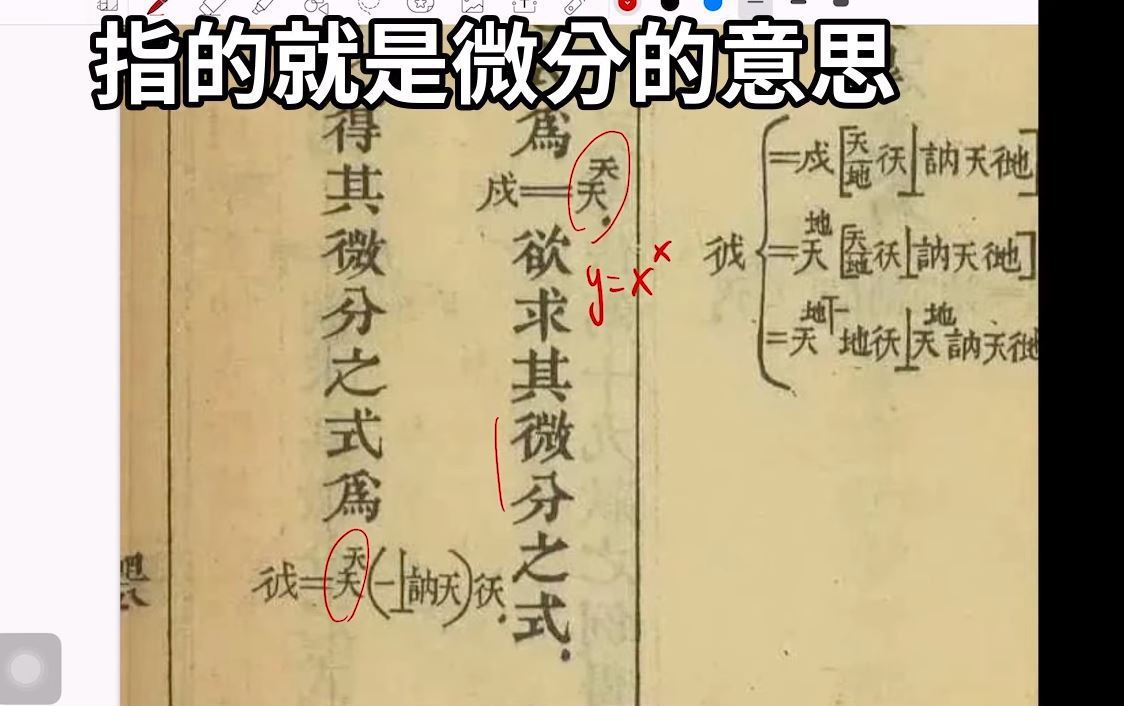 指的就是微分的意思
=戍[天/地 彳天⊥訥天彳地]
彳戍{=天^地[天/地 彳天⊥訥天彳地]
=天^地⊤一地彳天⊥天^地訥天彳地
爲
戍=天^天.
欲求其微分之式.
y=x^x
得其微分之式爲
彳戍=天^天(一⊥訥天)彳天.